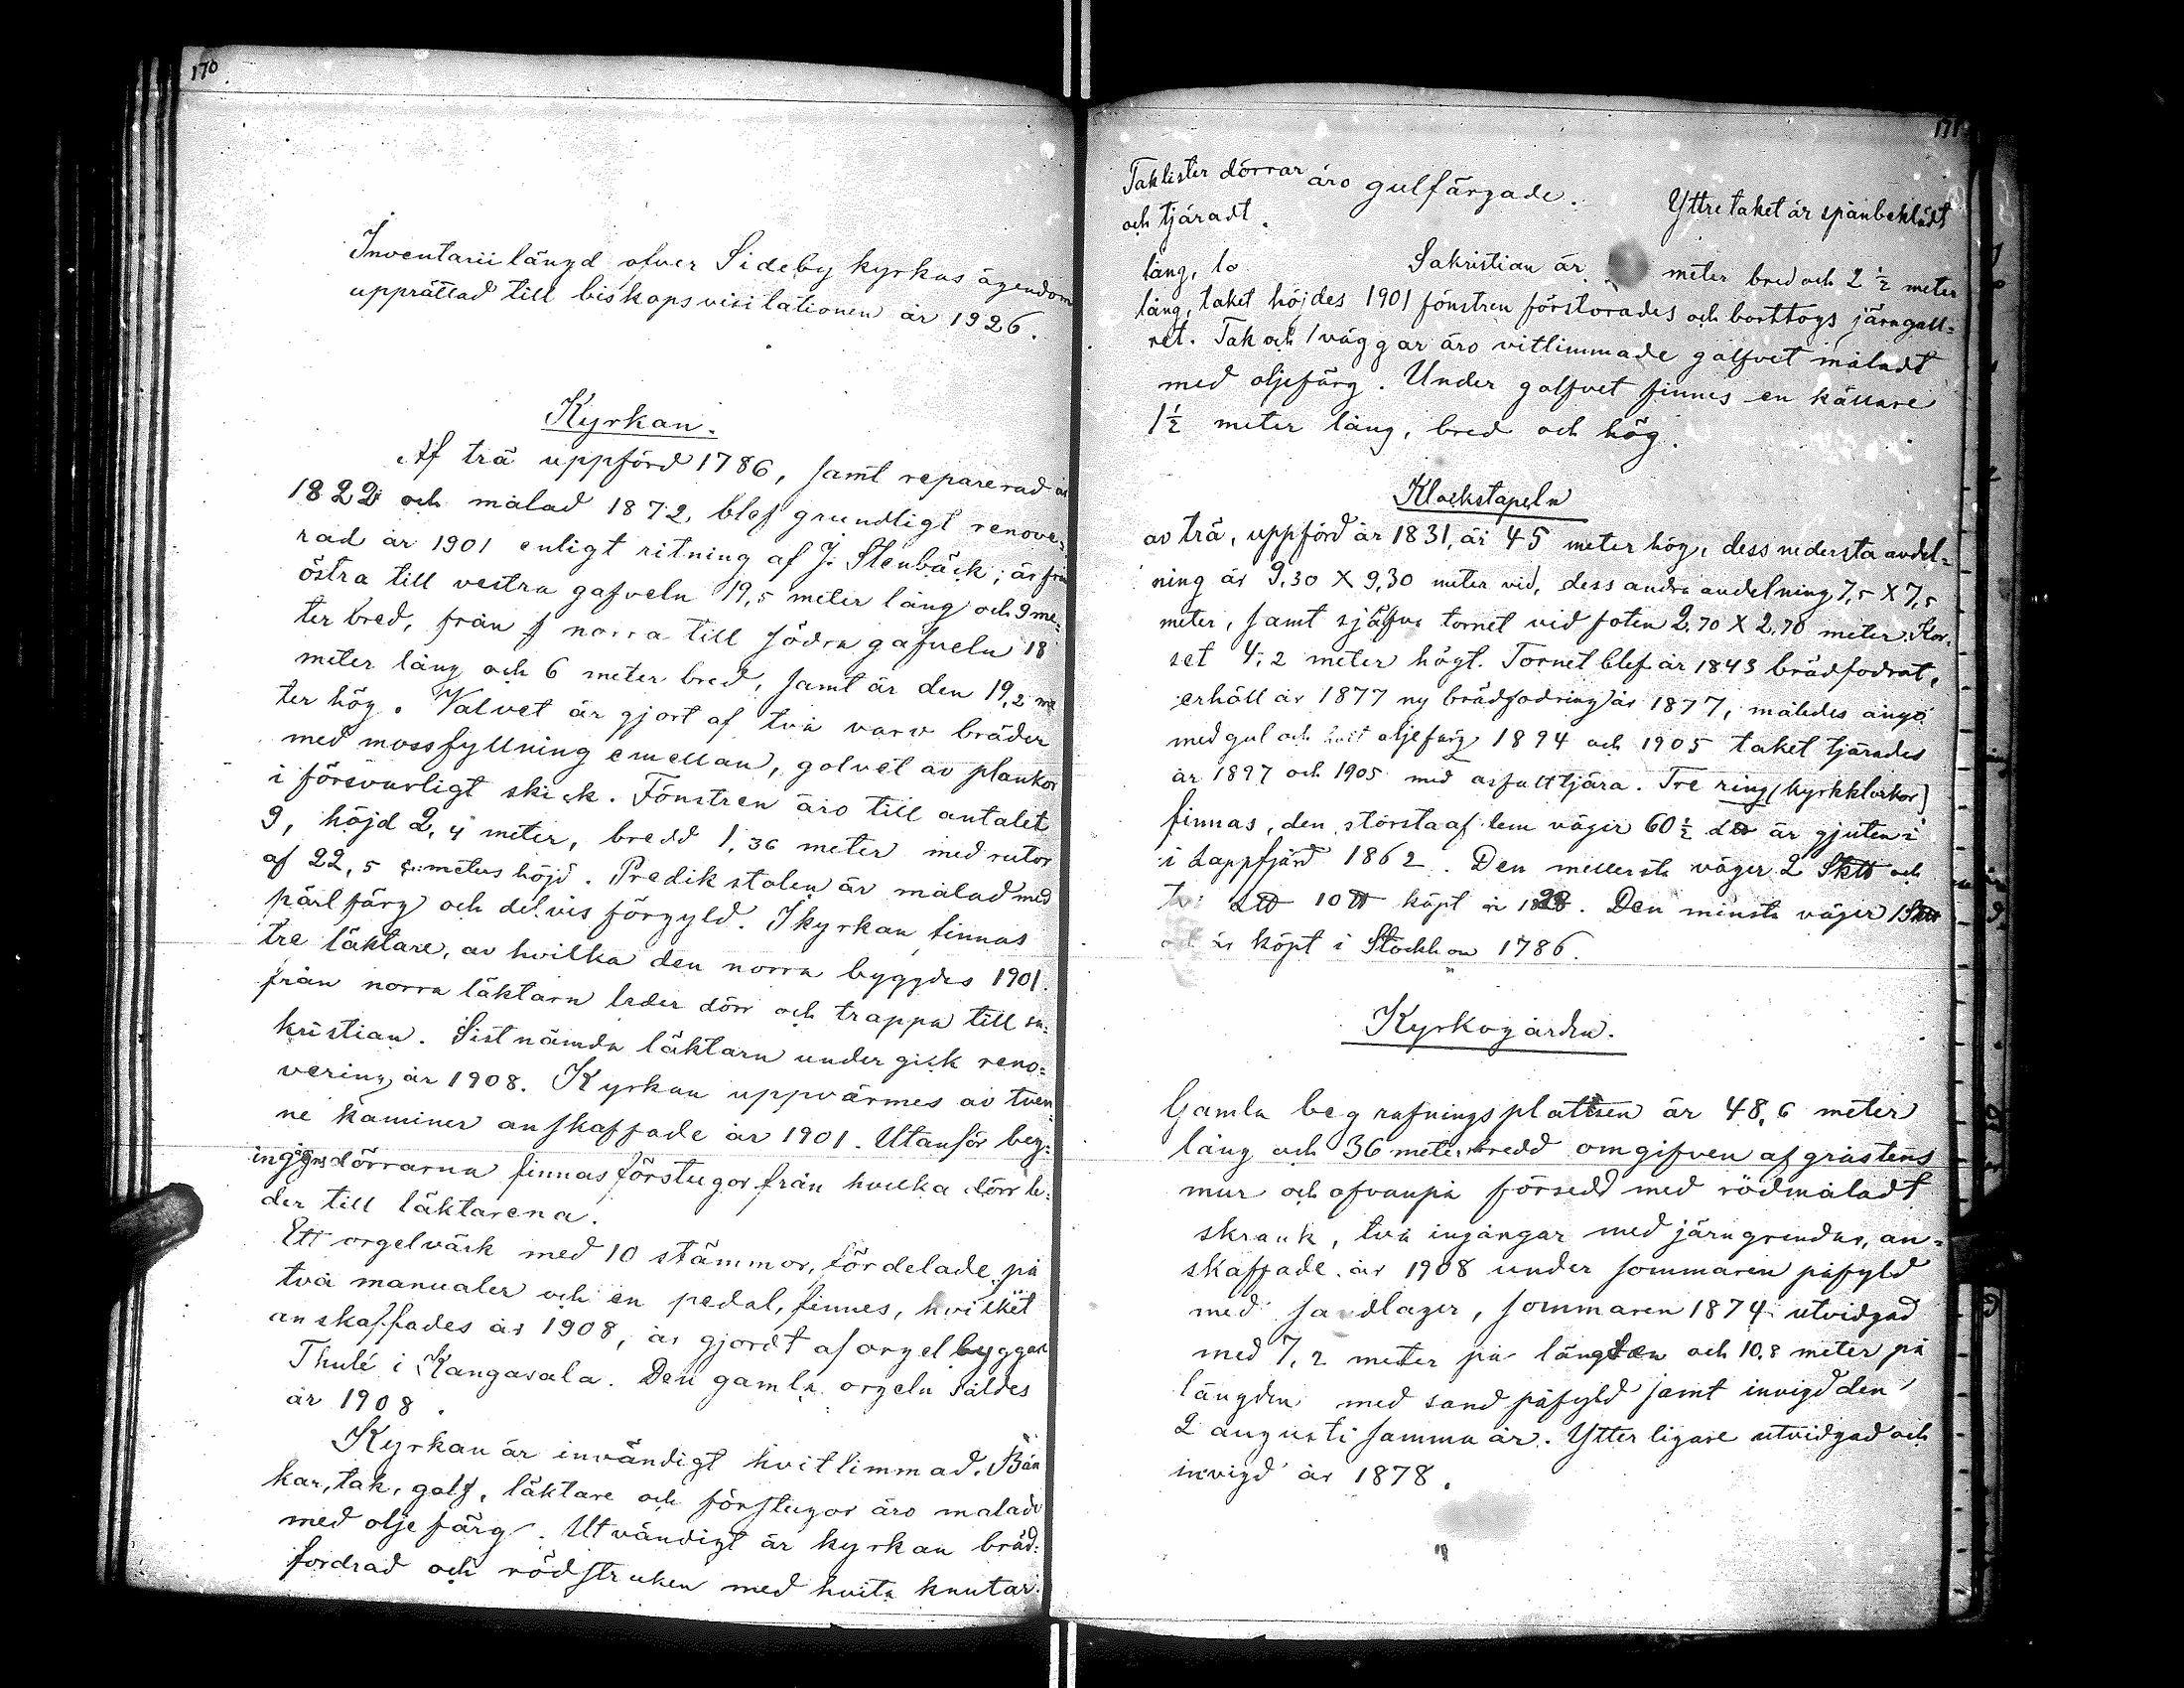 170
Inventarii längd öfver Sideby kyrkas ägendom
upprättad till biskopsvisitationen år 1926.
Kyrkan.
Af trä uppförd 1786, samt reparerad år
1822 och målad 1872, blef grundligt renove=
rad år 1901 enligt ritning af J. Stenbäck; är från
östra till vestra gafveln 19,5 meter lång och 9 me=
ter bred, från norra till södra gafveln 18
meter lång och 6 meter bred, samt är den 19,2 me
ter hög. Valvet är gjort af två varv bräder
med mossfyllning emellan, golvet av plankor
i försvarligt skick. Fönstren äro till antalet
9, höjd 2,4 meter, bredd 1,36 meter med rutor
af 22,5 höjd. Predikstolen är målad med
pärlfärg och delvis förgyld. I kyrkan finnas
tre läktare, av hvilka den norra byggdes 1901.
från norra läktarn leder dörr och trappa till sa=
kristian. Sistnämda läktarn undergick reno=
vering år 1908. Kyrkan uppvärmes av tven
ne kaminer anskaffade år 1901. Utanför
ingångsdörrarna finnas förstugor från hvilka dörr le=
der till läktarena.
Ett orgelvärk med 10 stämmor, fördelade på
två manualer och en pedal, finnes, hvilket
anskaffades år 1908, är gjordt af orgelbyggar
Thulé i Kangasala. Den gamla orgeln såldes
år 1908.
Kyrkan är invändigt hvitlimmad. Bän
kar, tak, golf, läktare och förstugor äro målade
med oljefärg. Utvändigt är kyrkan bräd=
fordrad och rödstruken med hvita knutar.
171
Taklister dörrar äro gulfärgade. Yttre taket är spånbeklädt
och tjäradt.
Sakristian är meter bred och 2 ½ meter
lång,
lång, taket höjdes 1901 fönstren förstorades och borttogs järngall=
ret. Tak och väggar äro vitlimmade golfvet måladt
med oljefärg. Under golfvet finnes en källare
1½ meter lång, bred och hög.
Klockstapeln
av trä, uppförd år 1831, är 45 meter hög, dess nedersta avdel=
ning är 9,30 X 9,30 meter vid, dess andra avdelning 7,5 X 7,5
meter, samt själfva tornet vid foten 2,70 X 2,70 meter. Kor=
set 4,2 meter högt. Tornet blef år 1843 brädfodrat,
erhöll år 1877 ny brädfodring år 1877, målades ånyo
med gul och hvit oljefärg 1894 och 1905 taket tjärades
år 1897 och 1905 med asfalttjära. Tre ring (kyrkklockor)
finnas, den största af dem väger 60½ är gjuten i
i Lappfjärd 1862. Den mellersta väger 2 och
10 köpt år. Den minsta väger 1
är köpt i Stockhom 1786.
Kyrkogården.
Gamla begrafningsplattsen är 48,6 meter
lång och 36 meter bredd omgifven af gråstens
mur och ofvanpå försedd med rödmåladt
skrank, två ingångar med järngrindar, an=
skaffade år 1908 under sommaren påfyld
med sandlager, sommaren 1874 utvidgad
med 7,2 meter på längden och 10,8 meter på
längden med sand påfyld samt invigd den
2 augusti samma år. Ytterligare utvidgad och
invigd år 1878.